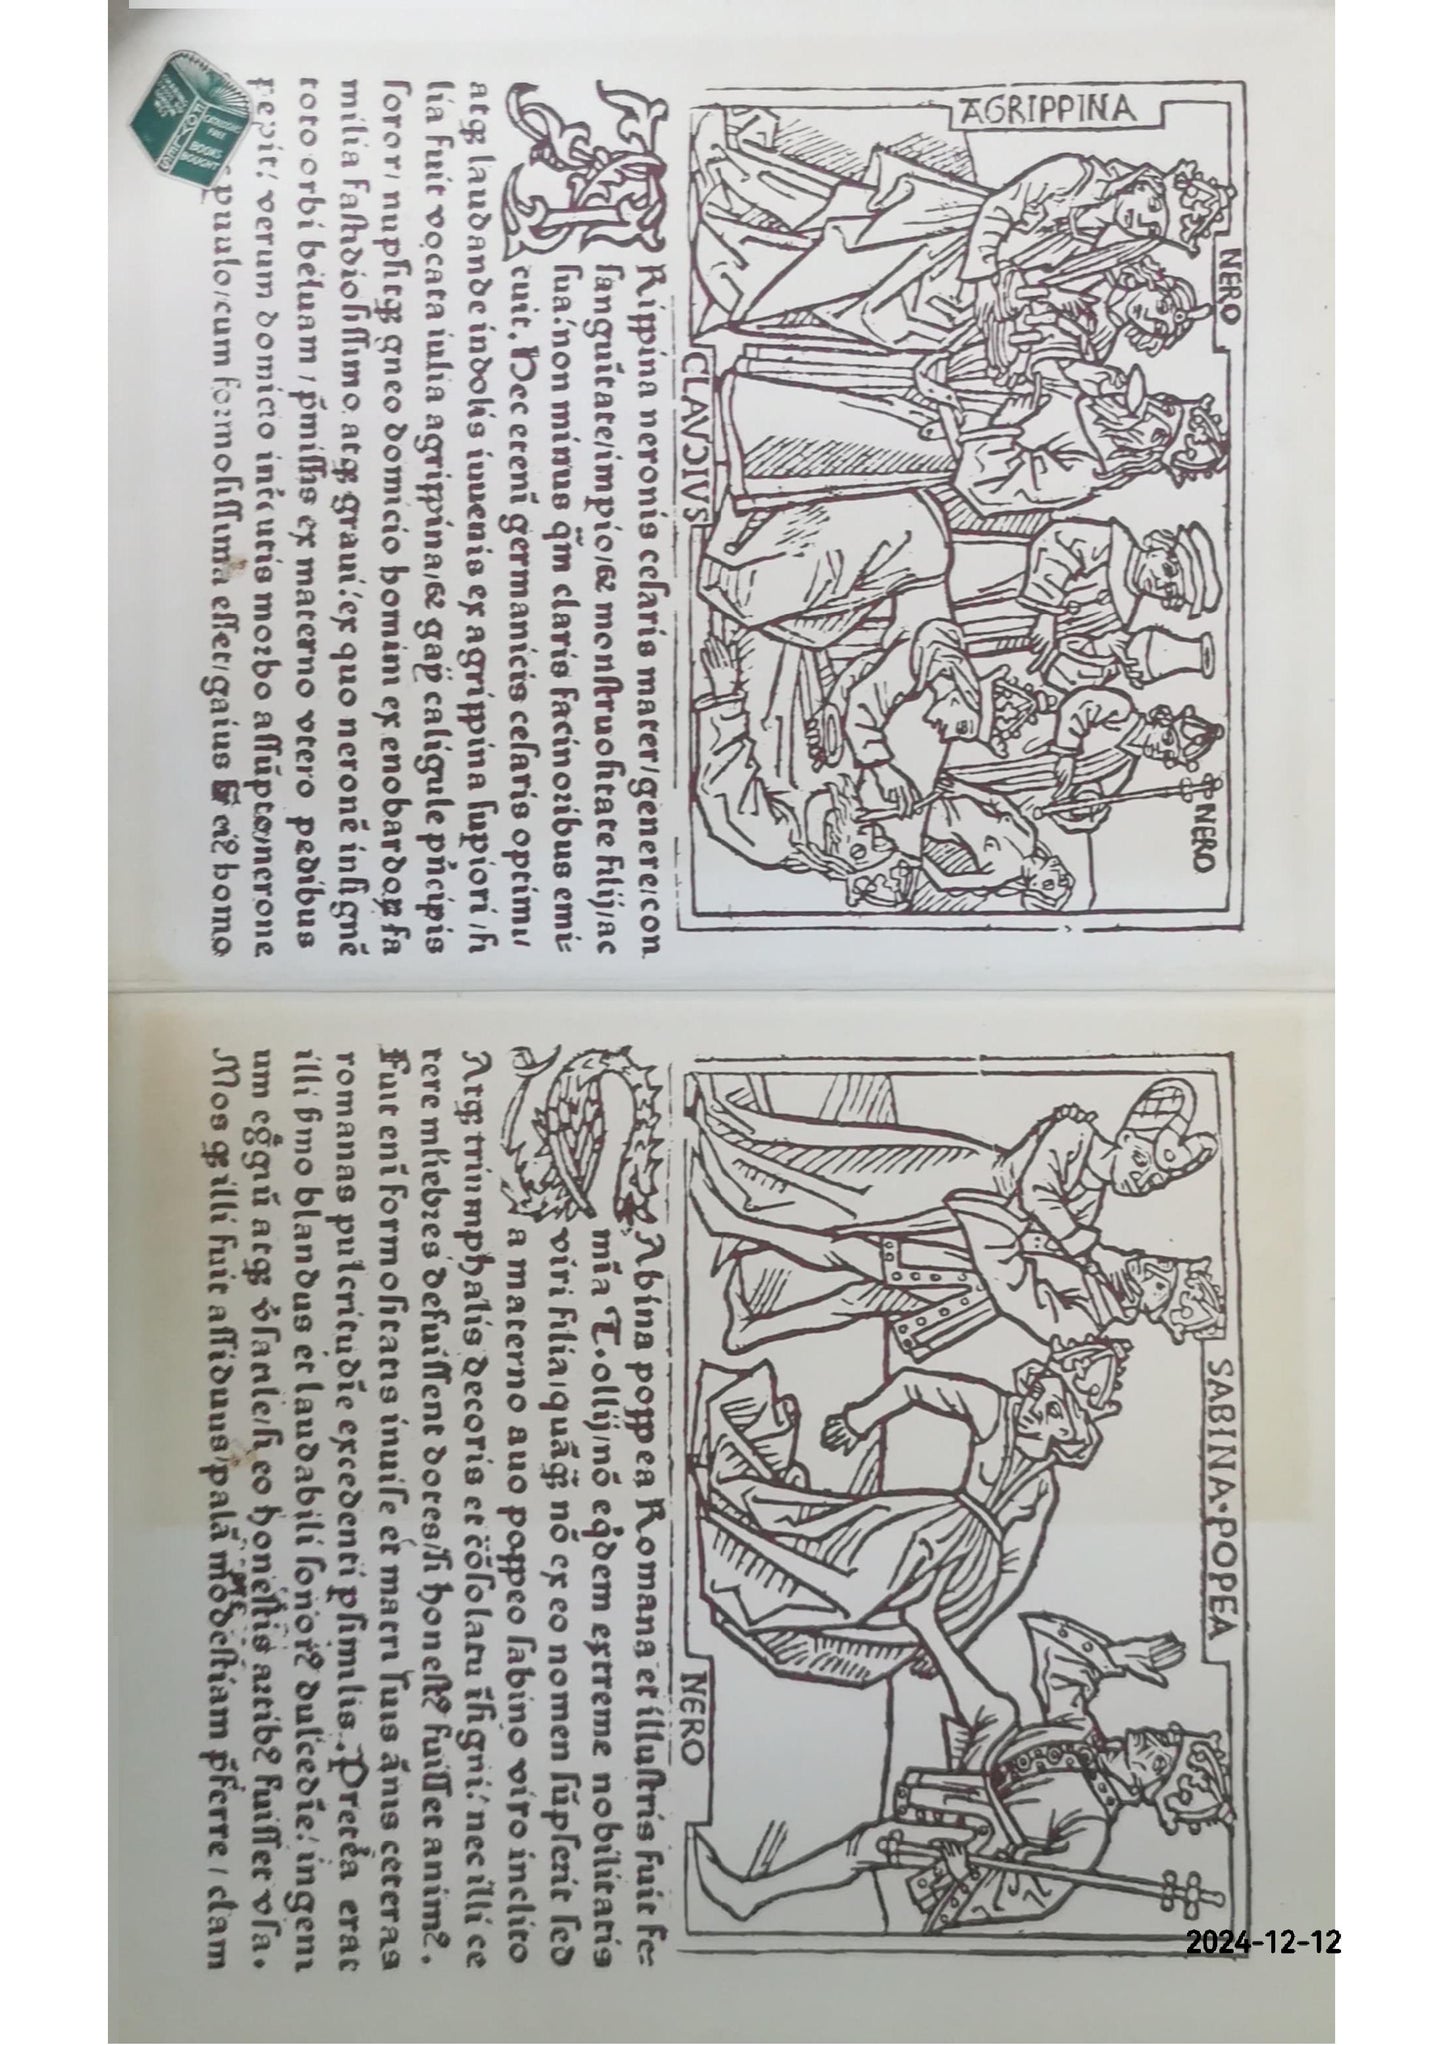 AGRIPPINA
NERO
NERO
CLAVDIVS
Rippina neronis cesaris mater/genere/con
sanguītate/impio/& monstruositate filij/ac
sua/non minus q̄m claris facinoribus emi=
cuit. Hec etenī germanicis cesaris optimi/
atqꝫ laudande indolis iuuenis ex agrippina supiori/fi
lia fuit vocata iulia agrippina/& gaij caligule pñcipis
soror/ nupsitqꝫ gneo domicio homini ex enobardoꝝ fa
milia fastidiosissimo atqꝫ graui/ex quo neronē insignē
toto orbi beluam/
ex materno vtero pedibus
repit/ verum domicio
morbo assūpto/nerone
puulo/cum formosissima esset/gaius
homo
FOYLES
CATALOGUES FREE
BOOKS BOUGHT
SABINA·POPEA
NERO
Abina poppea Romana et illustris fuit fe=
mīa T. ollij/nō eqdem extreme nobilitatis
viri filia/quāqꝫ nō ex eo nomen sūpserit sed
a materno auo poppeo sabino viro inclito
Atqꝫ triumphalis decoris et cōsolatu īsigni/ nec illi ce
tere mliebres defuissent dotes/si honestꝰ fuisset animꝰ.
Fuit enī formositatis inuise et matri suis ānis ceteras
romanas pulcritudīe excedenti psimilis. Pretea erat
illi smo blandus et laudabili
dulcedīe/ ingeni
um egregiū atqꝫ vsatile/si eo honestis artibꝰ fuisset vsa.
Mos qꝫ illi fuit assiduus/palā modestiam pferre/ clam
2024-12-12